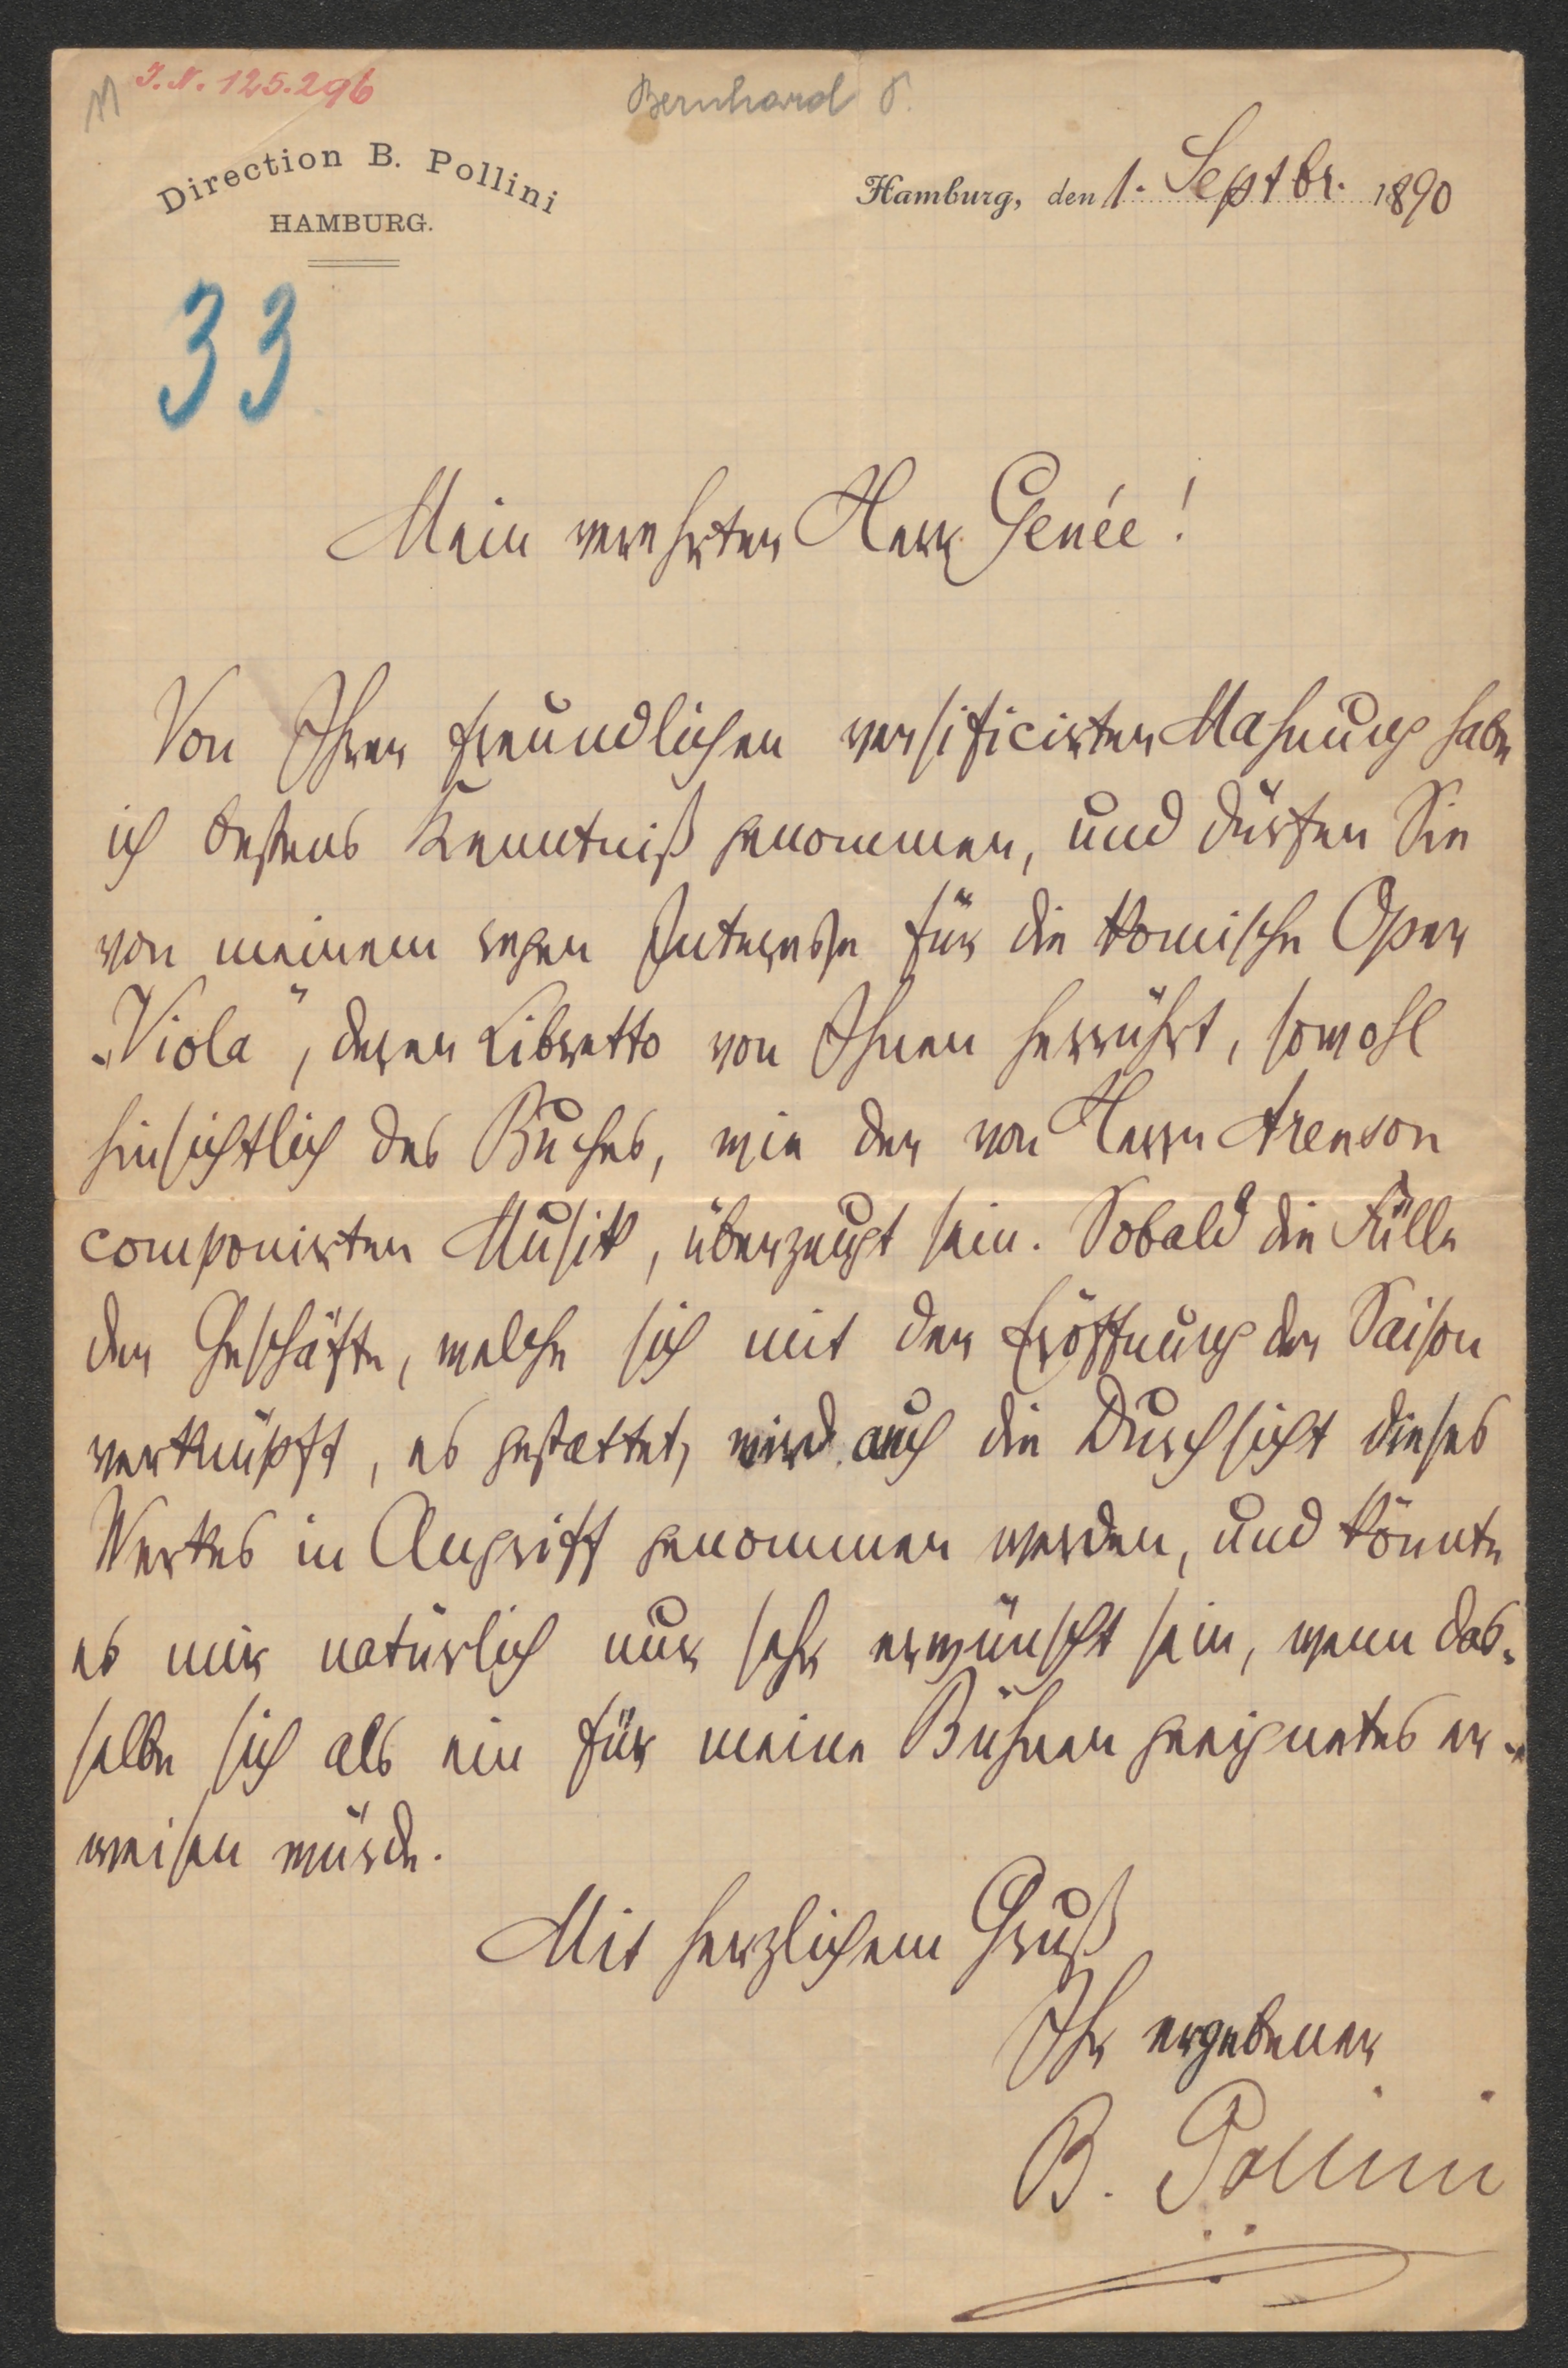 J. N. 125.296
Bernhard P.
Direction B. Pollini
HAMBURG.
Hamburg, den 1. Septbr. 1890
33
Mein verehrter Herr Genée!
Von Ihrer freundlichen versificirten Mahnung habe
ich bestens Kenntniß genommen, und dürfen Sie
von meinem regen Interesse für die komische Oper
„Viola“, deren Libretto von Ihnen herrührt, sowohl
hinsichtlich des Buches, wie der von Herrn Arenson
componirten Musik, überzeugt sein. Sobald die Fülle
der Geschäfte, welche sich mit der Eröffnung der Saison
verknüpft, es gestattet, wird auch die Durchsicht dieses
Werkes in Angriff genommen werden, und könnte
es mir natürlich nur sehr erwünscht sein, wenn das-
selbe sich als ein für meine Bühnen geeignetes er-
weisen würde.
Mit herzlichem Gruß
Ihr ergebener
B. Pollini